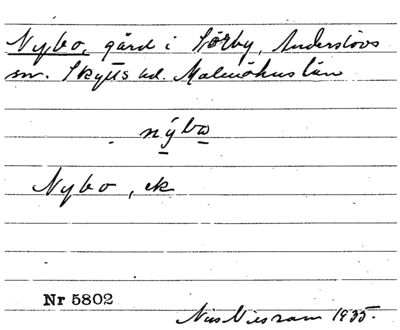 Nybo, gård i Sörby, Anderslövs
sn. Skytts hd. Malmöhus län
nýbo
Nybo, ek
Nr 5802
Nils 1935.